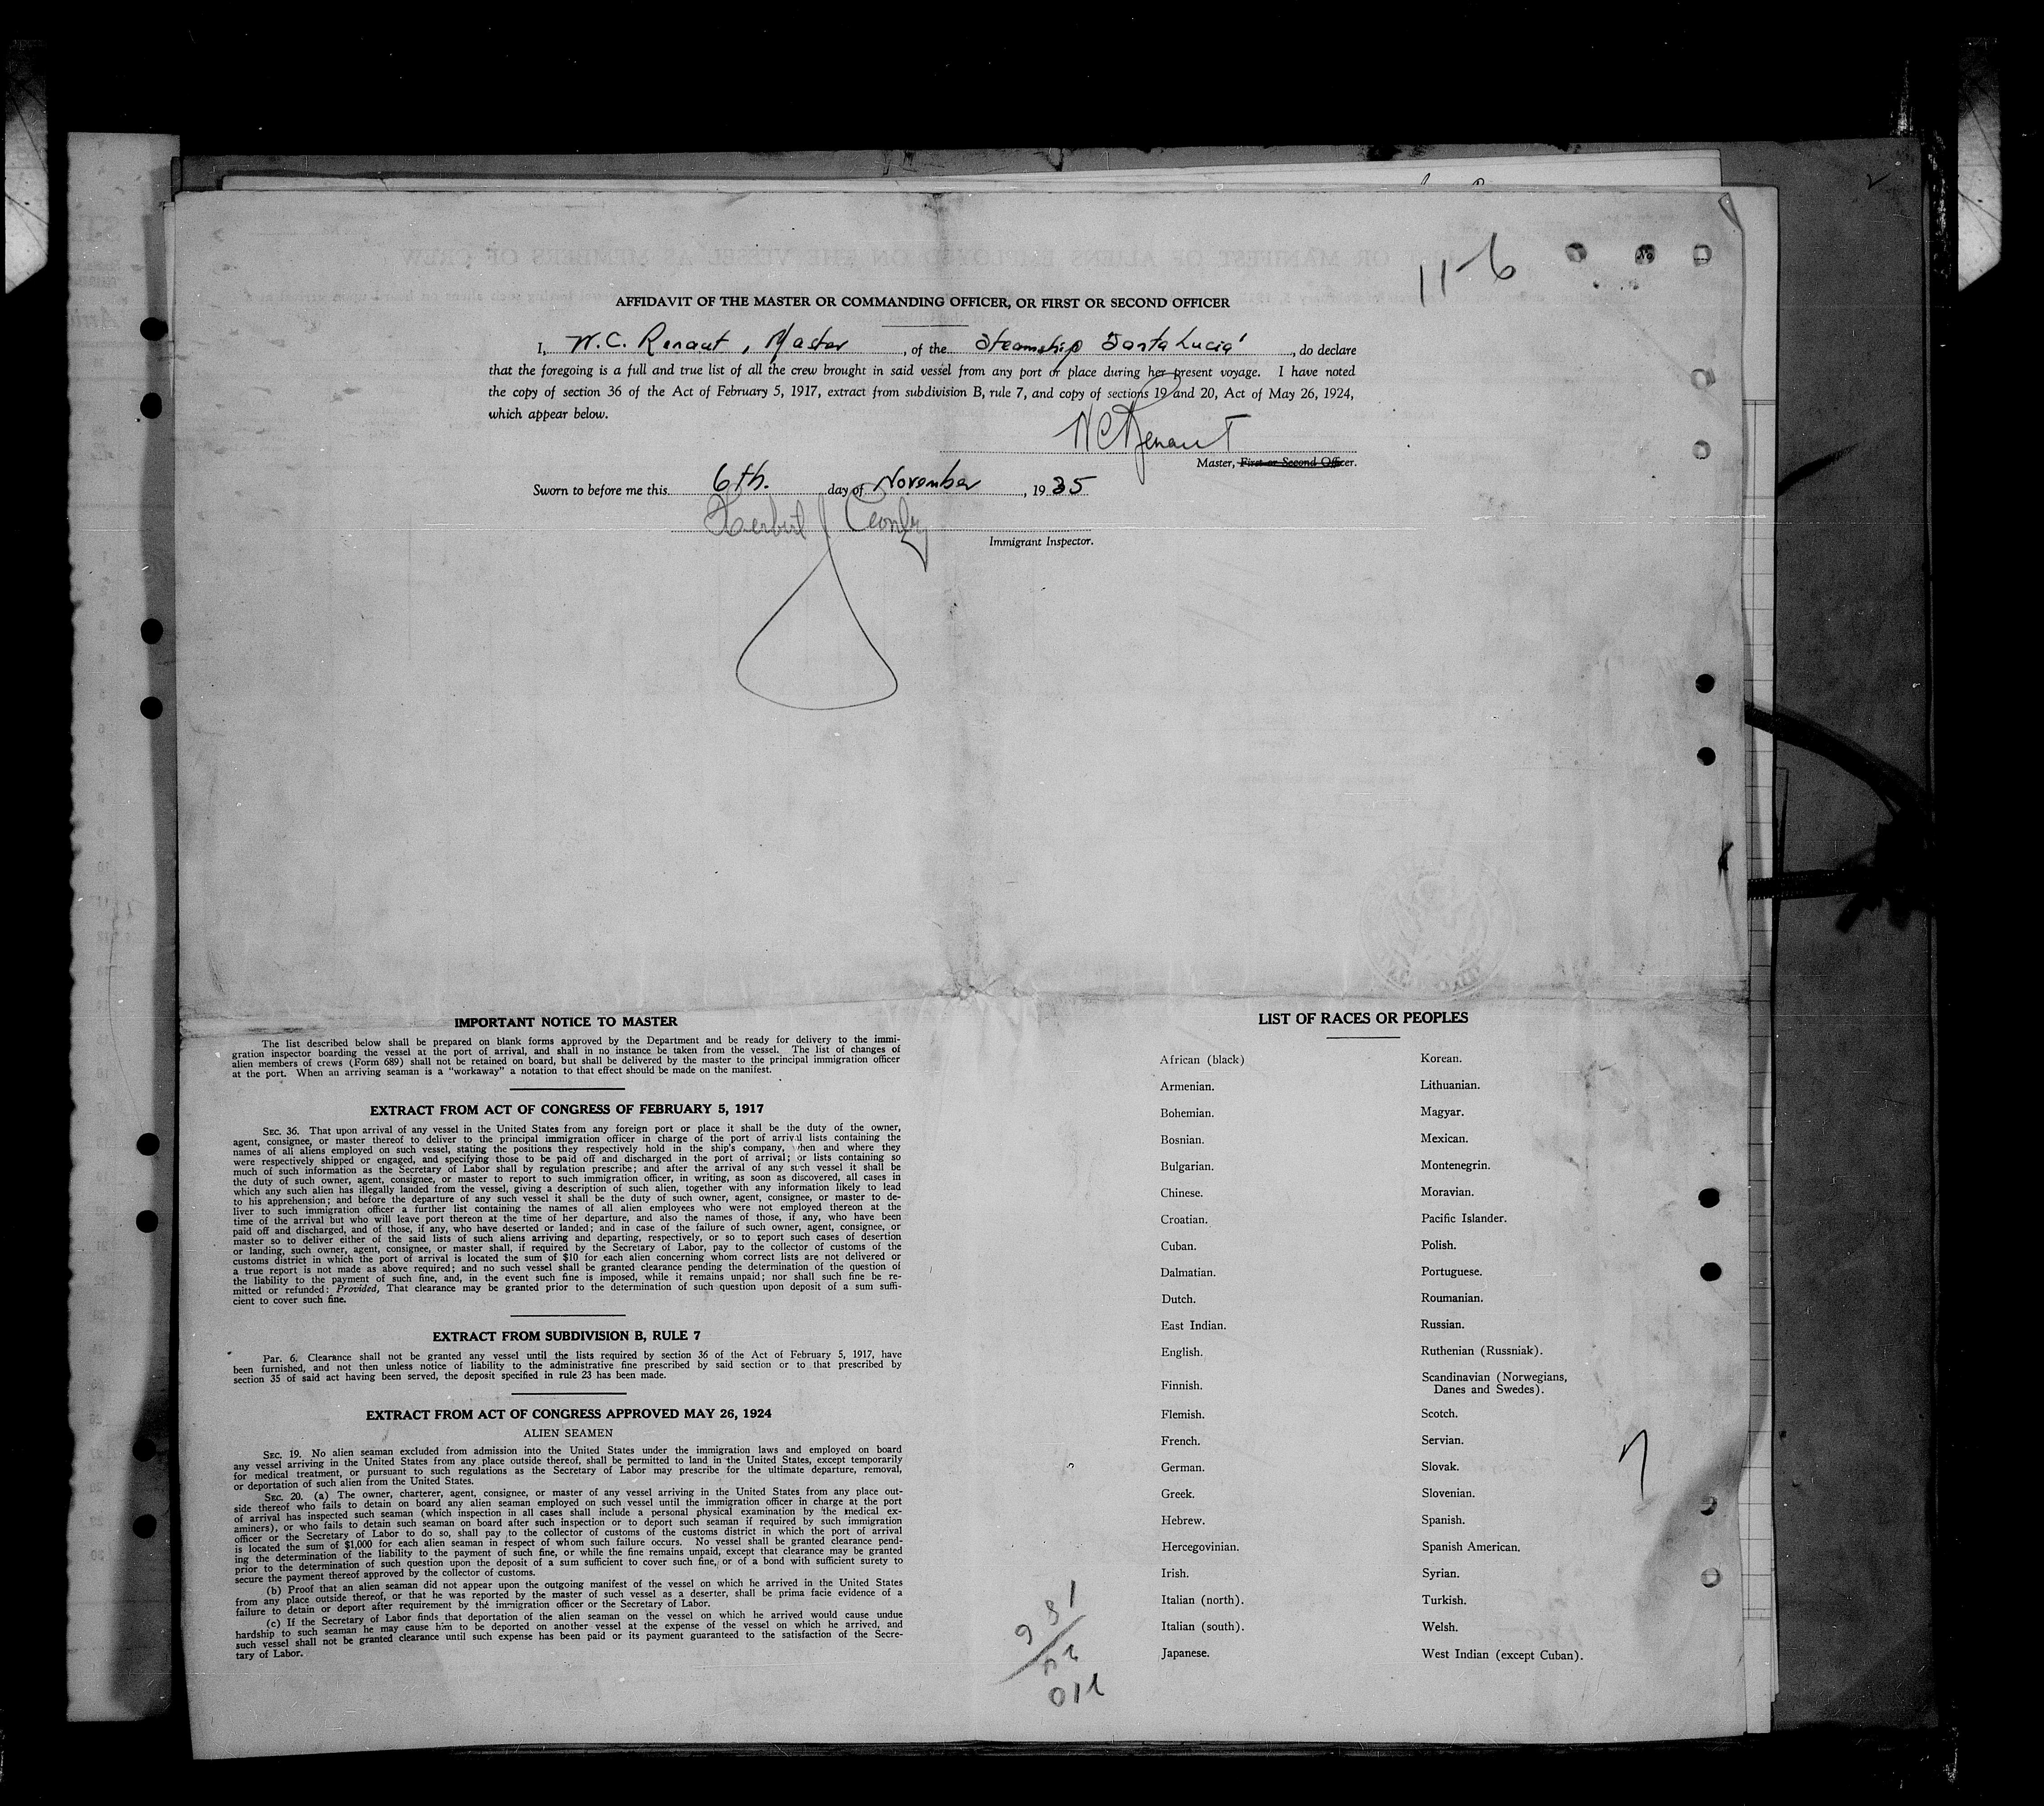 11-6
AFFIDAVIT OF THE MASTER OR COMMANDING OFFICER, OR FIRST OR SECOND OFFICER
I, W. C. Renaut, Master, of the Steamship Santa Lucia, do declare
that the foregoing is a full and true list of all the crew brought in said vessel from any port or place during her present voyage. I have noted
the copy of section 36 of the Act of February 5, 1917, extract from subdivision B, rule 7, and copy of sections 19 and 20, Act of May 26, 1924,
which appear below.
W C Renaut
Master, First or Second Officer.
Sworn to before me this 6th. day of November, 1935
Herbert J
Immigrant Inspector.
IMPORTANT NOTICE TO MASTER
The list described below shall be prepared on blank forms approved by the Department and be ready for delivery to the immi-
gration inspector boarding the vessel at the port of arrival, and shall in no instance be taken from the vessel. The list of changes of
alien members of crews (Form 689) shall not be retained on board, but shall be delivered by the master to the principal immigration officer
at the port. When an arriving seaman is a "workaway" a notation to that effect should be made on the manifest.
EXTRACT FROM ACT OF CONGRESS OF FEBRUARY 5, 1917
SEC. 36. That upon arrival of any vessel in the United States from any foreign port or place it shall be the duty of the owner,
agent, consignee, or master thereof to deliver to the principal immigration officer in charge of the port of arrival lists containing the
names of all aliens employed on such vessel, stating the positions they respectively hold in the ship's company, when and where they
were respectively shipped or engaged, and specifying those to be paid off and discharged in the port of arrival; or lists containing so
much of such information as the Secretary of Labor shall by regulation prescribe; and after the arrival of any such vessel it shall be
the duty of such owner, agent, consignee, or master to report to such immigration officer, in writing, as soon as discovered, all cases in
which any such alien has illegally landed from the vessel, giving a description of such alien, together with any information likely to lead
to his apprehension; and before the departure of any such vessel it shall be the duty of such owner, agent, consignee, or master to de-
liver to such immigration officer a further list containing the names of all alien employees who were not employed thereon at the
time of the arrival but who will leave port thereon at the time of her departure, and also the names of those, if any, who have been
paid off and discharged, and of those, if any, who have deserted or landed; and in case of the failure of such owner, agent, consignee, or
master so to deliver either of the said lists of such aliens arriving and departing, respectively, or so to report such cases of desertion
or landing, such owner, agent, consignee, or master shall, if required by the Secretary of Labor, pay to the collector of customs of the
customs district in which the port of arrival is located the sum of $10 for each alien concerning whom correct lists are not delivered or
a true report is not made as above required; and no such vessel shall be granted clearance pending the determination of the question of
the liability to the payment of such fine, and, in the event such fine is imposed, while it remains unpaid; nor shall such fine be re-
mitted or refunded: Provided, That clearance may be granted prior to the determination of such question upon deposit of a sum suffi-
cient to cover such fine.
EXTRACT FROM SUBDIVISION B, RULE 7
Par. 6. Clearance shall not be granted any vessel until the lists required by section 36 of the Act of February 5, 1917, have
been furnished, and not then unless notice of liability to the administrative fine prescribed by said section or to that prescribed by
section 35 of said act having been served, the deposit specified in rule 23 has been made.
EXTRACT FROM ACT OF CONGRESS APPROVED MAY 26, 1924
ALIEN SEAMEN
SEC. 19. No alien seaman excluded from admission into the United States under the immigration laws and employed on board
any vessel arriving in the United States from any place outside thereof, shall be permitted to land in the United States, except temporarily
for medical treatment, or pursuant to such regulations as the Secretary of Labor may prescribe for the ultimate departure, removal,
or deportation of such alien from the United States.
SEC. 20. (a) The owner, charterer, agent, consignee, or master of any vessel arriving in the United States from any place out-
side thereof who fails to detain on board any alien seaman employed on such vessel until the immigration officer in charge at the port
of arrival has inspected such seaman (which inspection in all cases shall include a personal physical examination by the medical ex-
aminers), or who fails to detain such seaman on board after such inspection or to deport such seaman if required by such immigration
officer or the Secretary of Labor to do so, shall pay to the collector of customs of the customs district in which the port of arrival
is located the sum of $1,000 for each alien seaman in respect of whom such failure occurs. No vessel shall be granted clearance pend-
ing the determination of the liability to the payment of such fine, or while the fine remains unpaid, except that clearance may be granted
prior to the determination of such question upon the deposit of a sum sufficient to cover such fine, or of a bond with sufficient surety to
secure the payment thereof approved by the collector of customs.
(b) Proof that an alien seaman did not appear upon the outgoing manifest of the vessel on which he arrived in the United States
from any place outside thereof, or that he was reported by the master of such vessel as a deserter, shall be prima facie evidence of a
failure to detain or deport after requirement by the immigration officer or the Secretary of Labor.
(c) If the Secretary of Labor finds that deportation of the alien seaman on the vessel on which he arrived would cause undue
hardship to such seaman he may cause him to be deported on another vessel at the expense of the vessel on which he arrived, and
such vessel shall not be granted clearance until such expense has been paid or its payment guaranteed to the satisfaction of the Secre-
tary of Labor.
LIST OF RACES OR PEOPLES
African (black)
Armenian.
Bohemian.
Bosnian.
Bulgarian.
Chinese.
Croatian.
Cuban.
Dalmatian.
Dutch.
East Indian.
English.
Finnish.
Flemish.
French.
German.
Greek.
Hebrew.
Hercegovinian.
Irish.
Italian (north).
Italian (south).
Japanese.
Korean.
Lithuanian.
Magyar.
Mexican.
Montenegrin.
Moravian.
Pacific Islander.
Polish.
Portuguese.
Roumanian.
Russian.
Ruthenian (Russniak).
Scandinavian (Norwegians,
Danes and Swedes).
Scotch.
Servian.
Slovak.
Slovenian.
Spanish.
Spanish American.
Syrian.
Turkish.
Welsh.
West Indian (except Cuban).